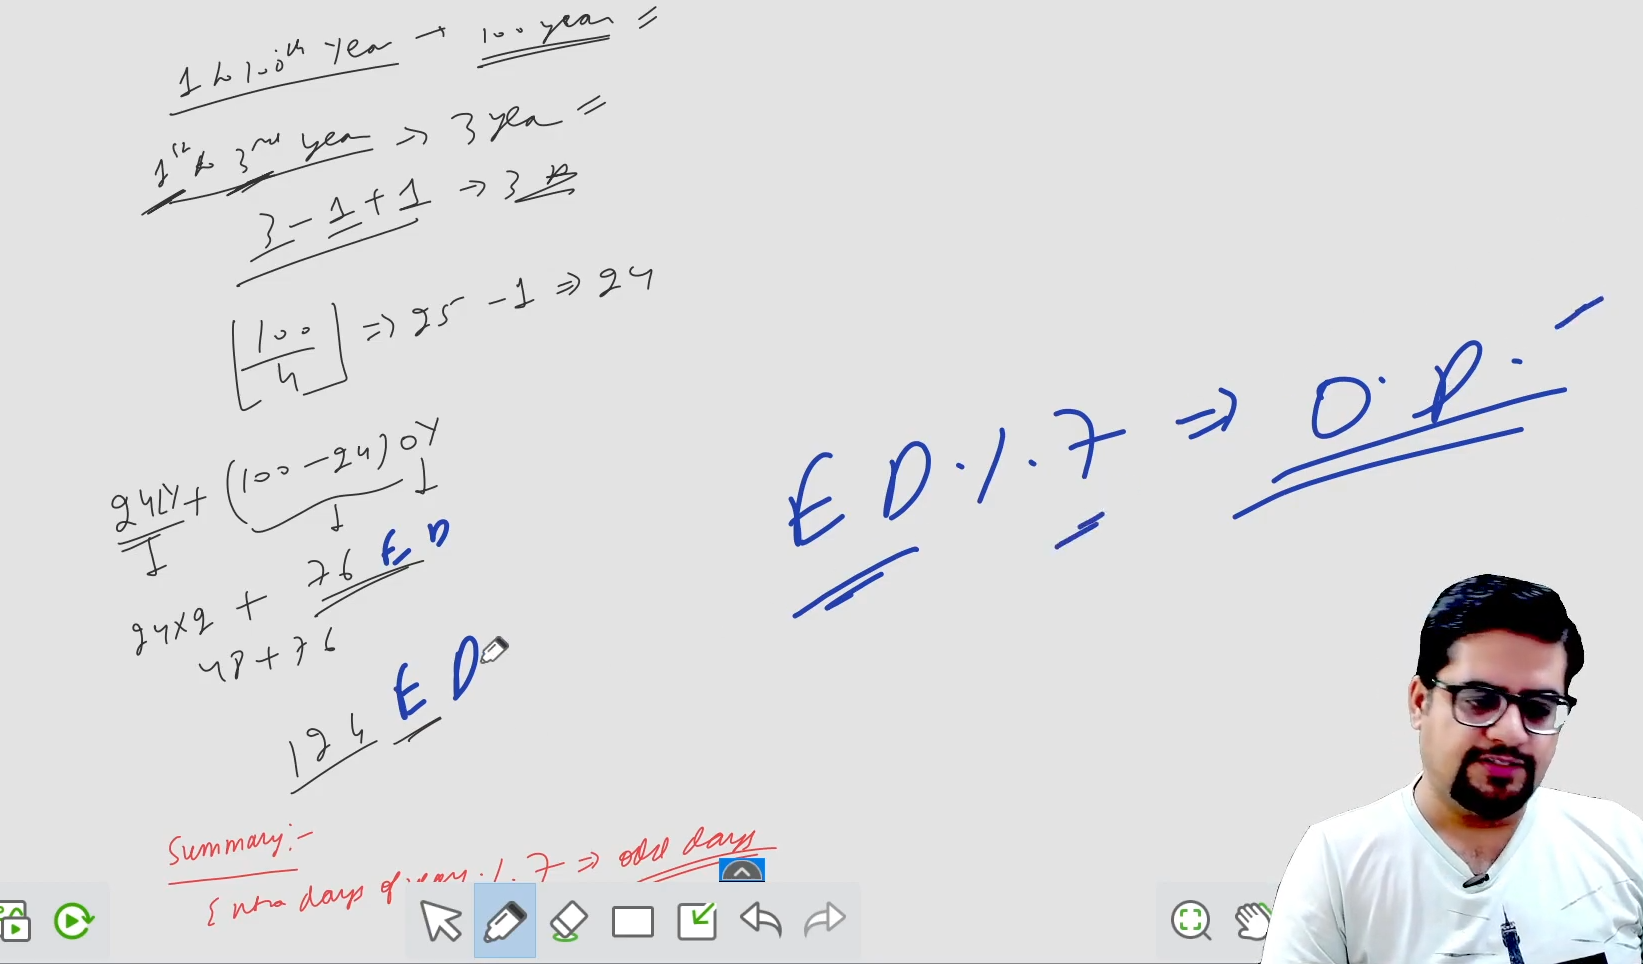 1 to 100th year → 100 year =
1st to 3rd year ⇒ 3 year =
3 - 1 + 1 ⇒ 3
[100/4] ⇒ 25 - 1 ⇒ 24
24LY + (100 - 24) OY
24x2 + 76 E D
48 + 76
124 E D
E D . / . 7 ⇒ O. D.
Summary:-
Extra days of years . / . 7 ⇒ odd days